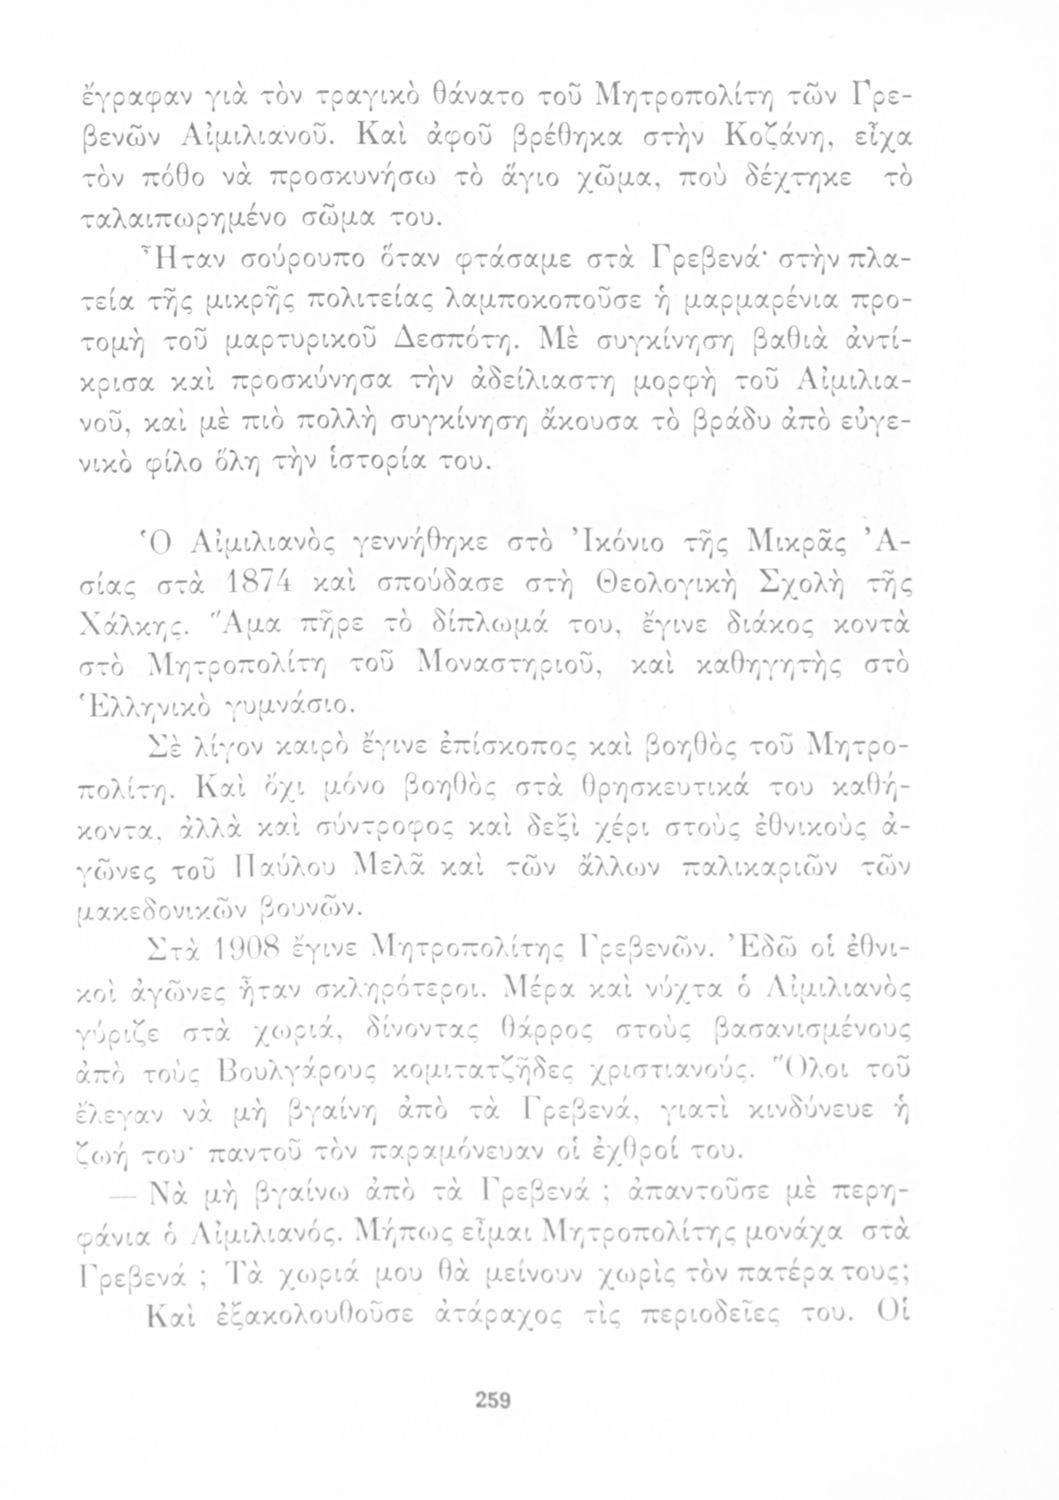 ἔγραφαν γιὰ τὸν τραγικὸ θάνατο τοῦ Μητροπολίτη τῶν Γρε-
βενῶν Αἰμιλιανοῦ. Καὶ ἀφοῦ βρέθηκα στὴν Κοζάνη, εἶχα
τὸν πόθο νὰ προσκυνήσω τὸ ἅγιο χῶμα, ποὺ δέχτηκε τὸ
ταλαιπωρημένο σῶμα του.
Ἦταν σούρουπο ὅταν φτάσαμε στὰ Γρεβενά· στὴν πλα-
τεία τῆς μικρῆς πολιτείας λαμποκοποῦσε ἡ μαρμαρένια προ-
τομὴ τοῦ μαρτυρικοῦ Δεσπότη. Μὲ συγκίνηση βαθιὰ ἀντί-
κρισα καὶ προσκύνησα τὴν ἀδείλιαστη μορφὴ τοῦ Αἰμιλια-
νοῦ, καὶ μὲ πιὸ πολλὴ συγκίνηση ἄκουσα τὸ βράδυ ἀπὸ εὐγε-
νικὸ φίλο ὅλη τὴν ἱστορία του.
Ὁ Αἰμιλιανὸς γεννήθηκε στὸ Ἰκόνιο τῆς Μικρᾶς Ἀ-
σίας στὰ 1874 καὶ σπούδασε στὴ Θεολογικὴ Σχολὴ τῆς
Χάλκης. Ἅμα πῆρε τὸ δίπλωμά του, ἔγινε διάκος κοντὰ
στὸ Μητροπολίτη τοῦ Μοναστηριοῦ, καὶ καθηγητὴς στὸ
Ἑλληνικὸ γυμνάσιο.
Σὲ λίγον καιρὸ ἔγινε ἐπίσκοπος καὶ βοηθὸς τοῦ Μητρο-
πολίτη. Καὶ ὄχι μόνο βοηθὸς στὰ θρησκευτικά του καθή-
κοντα, ἀλλὰ καὶ σύντροφος καὶ δεξὶ χέρι στοὺς ἐθνικοὺς ἀ-
γῶνες τοῦ Παύλου Μελᾶ καὶ τῶν ἄλλων παλικαριῶν τῶν
μακεδονικῶν βουνῶν.
Στὰ 1908 ἔγινε Μητροπολίτης Γρεβενῶν. Ἐδῶ οἱ ἐθνι-
κοὶ ἀγῶνες ἦταν σκληρότεροι. Μέρα καὶ νύχτα ὁ Αἰμιλιανὸς
γύριζε στὰ χωριά, δίνοντας θάρρος στοὺς βασανισμένους
ἀπὸ τοὺς Βουλγάρους κομιτατζῆδες χριστιανούς. Ὅλοι τοῦ
ἔλεγαν νὰ μὴ βγαίνη ἀπὸ τὰ Γρεβενά, γιατὶ κινδύνευε ἡ
ζωή του· παντοῦ τὸν παραμόνευαν οἱ ἐχθροί του.
— Νὰ μὴ βγαίνω ἀπὸ τὰ Γρεβενά ; ἀπαντοῦσε μὲ περη-
φάνια ὁ Αἰμιλιανός. Μήπως εἶμαι Μητροπολίτης μονάχα στὰ
Γρεβενά ; Τὰ χωριά μου θὰ μείνουν χωρὶς τὸν πατέρα τους;
Καὶ ἐξακολουθοῦσε ἀτάραχος τὶς περιοδεῖες του. Οἱ
259